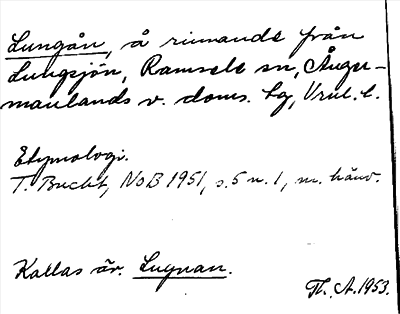 Lungån, å rinnande från
Lungsjön, Ramsele sn, Ånger-
manlands v. doms. tg, Vnl. l.
Etymologi.
T. Bucht, NoB 1951, s. 5 n. 1, m. hänv.
Kallas äv. Lugnan.
Fl. A. 1953.